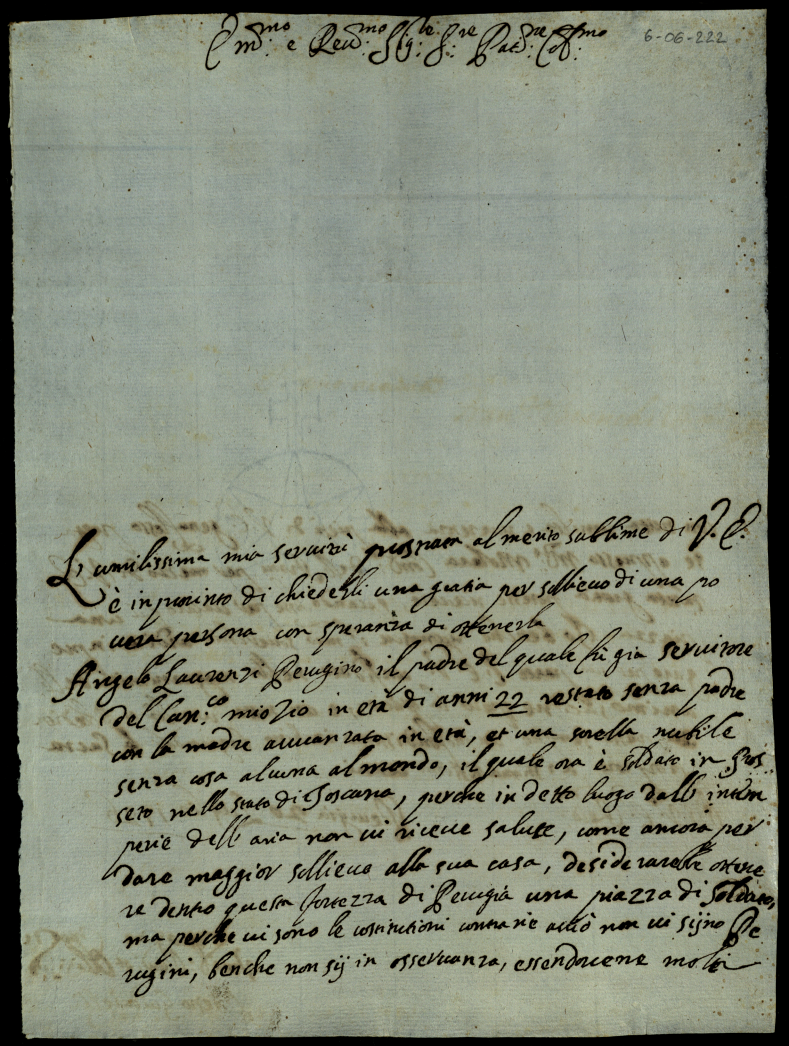 Em.mo e Rev.mo Sig.le S.re Pat.ne Col.mo
6-06-222
L'umilissima mia servitù prostrata al merito sublime di V. E.
è in punto di chiederli una gratia per sollievo di una po
vera persona con speranza di ottenerla
Angelo Laurenzi Perugino il padre del quale fù già servitore
del Can.co mio Zio in età di anni 22 restato senza padre
con la madre avvanzata in età, et una sorella nubile
senza cosa alcuna al mondo, il quale ora è soldato in Gros
seto nello stato di Toscana, perche in detto luogo dall intem
perie dell aria non vi riceve salute, come ancora per
dare maggior sollievo alla sua casa, desiderarebbe ottene
re dentro questa fortezza di Perugia una piazza di soldato,
ma perche vi sono le costitutioni contrarie acciò non vi sijno Pe
rugini, benche non sij in osservanza, essendovene molti